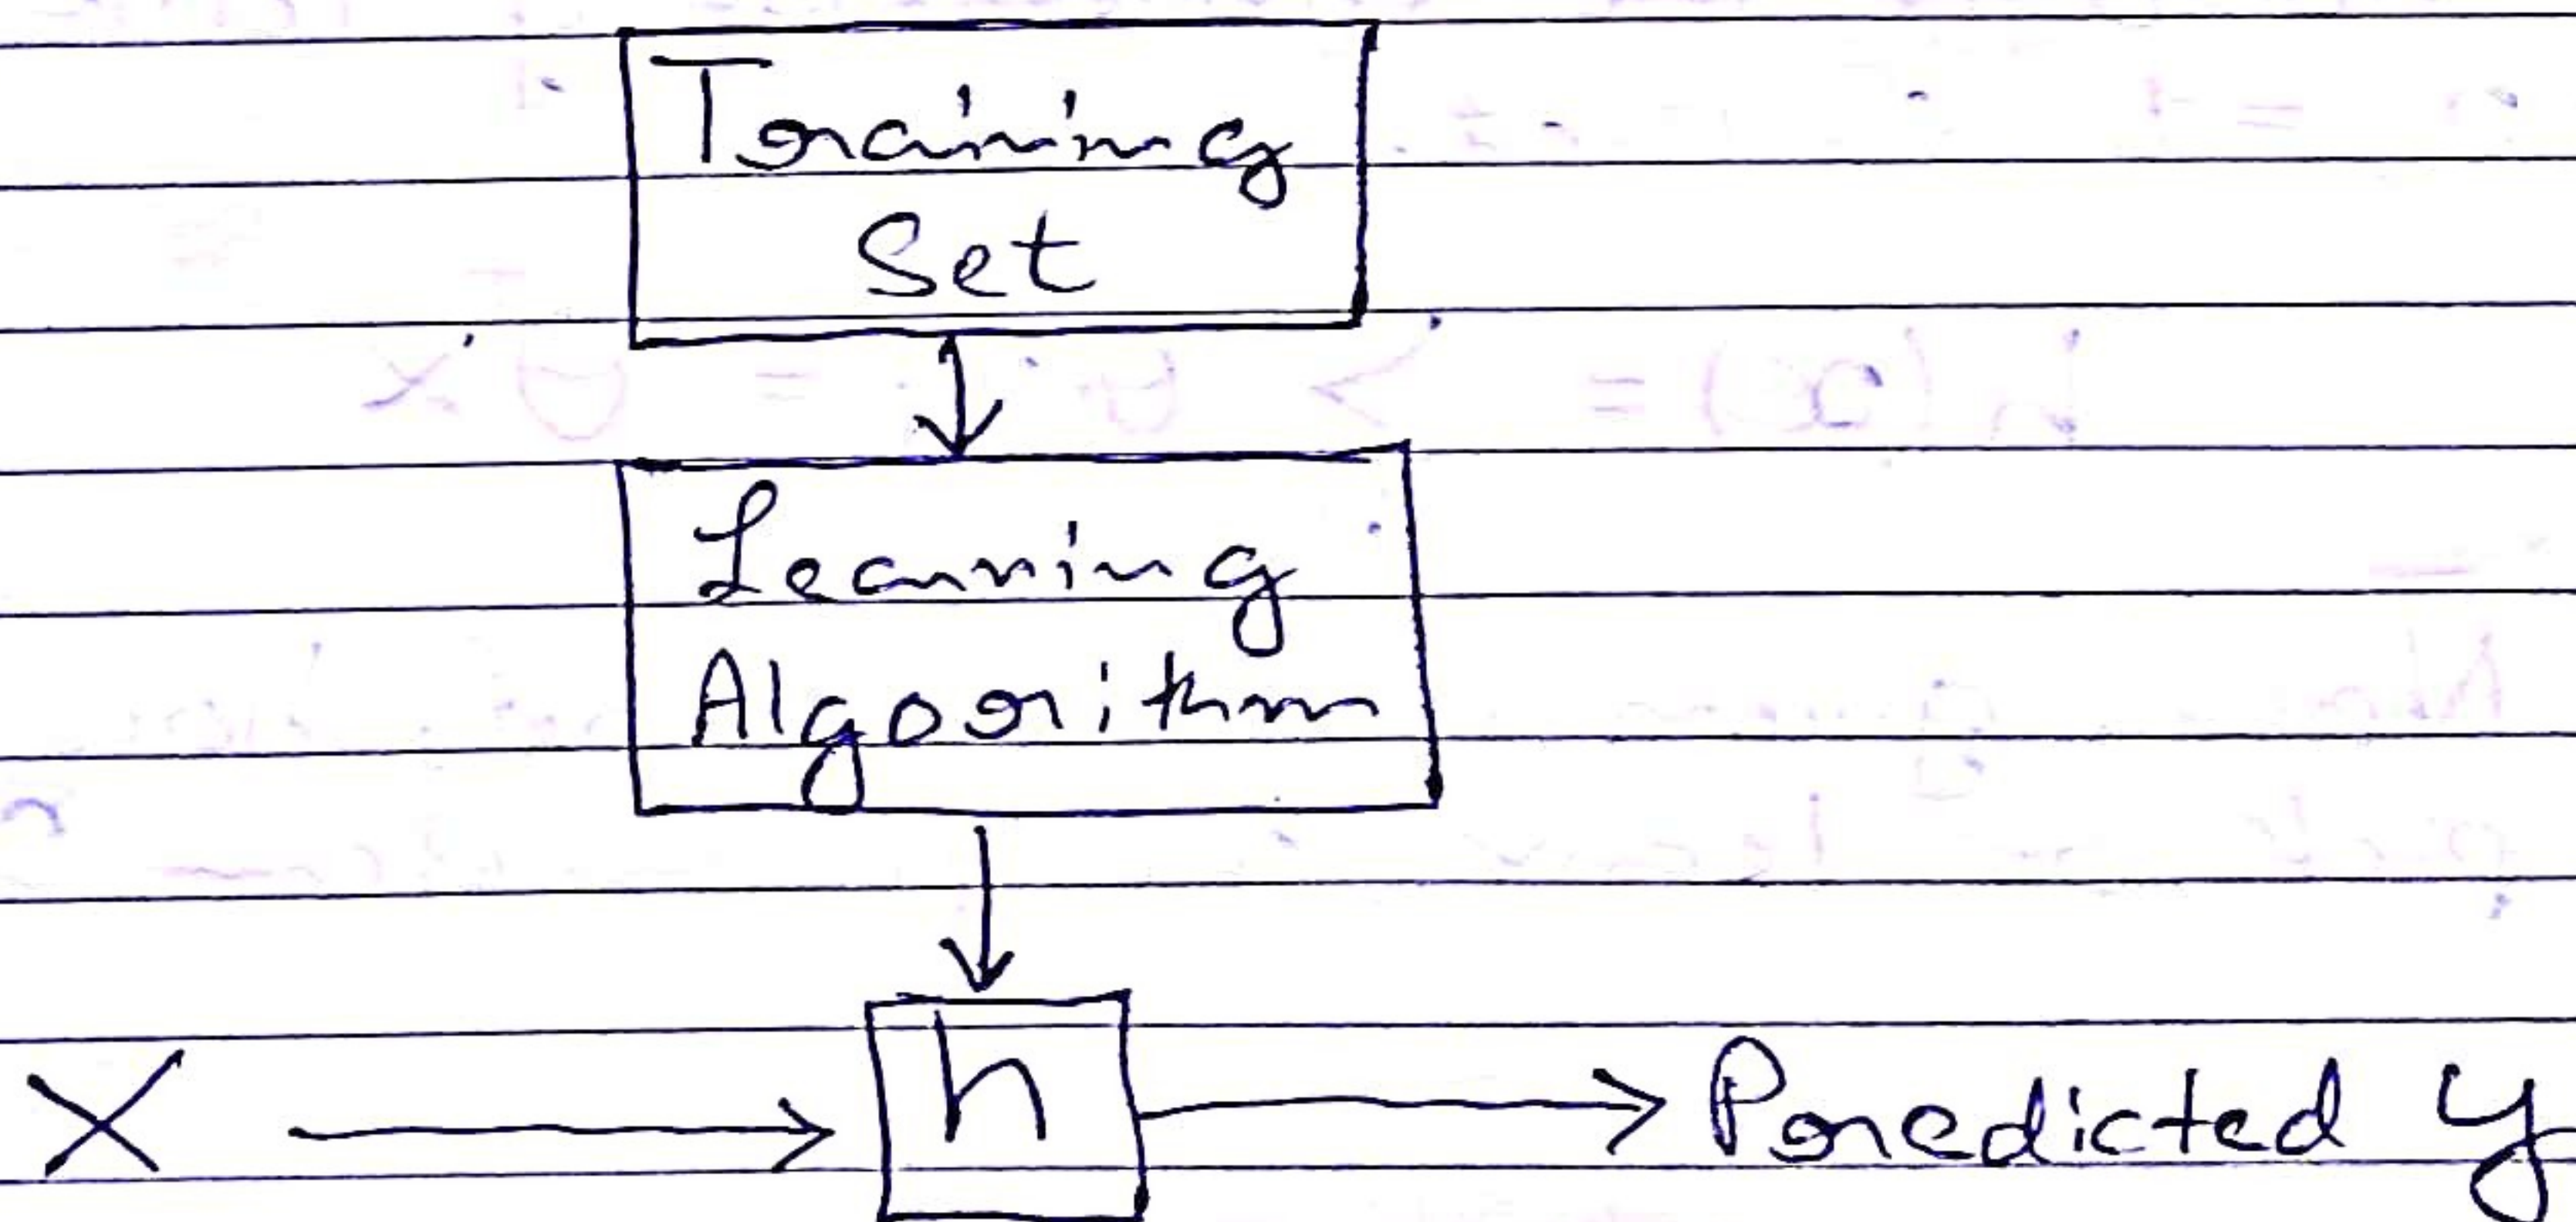 Training
Set
Learning
Algorithm
X
h
Predicted y